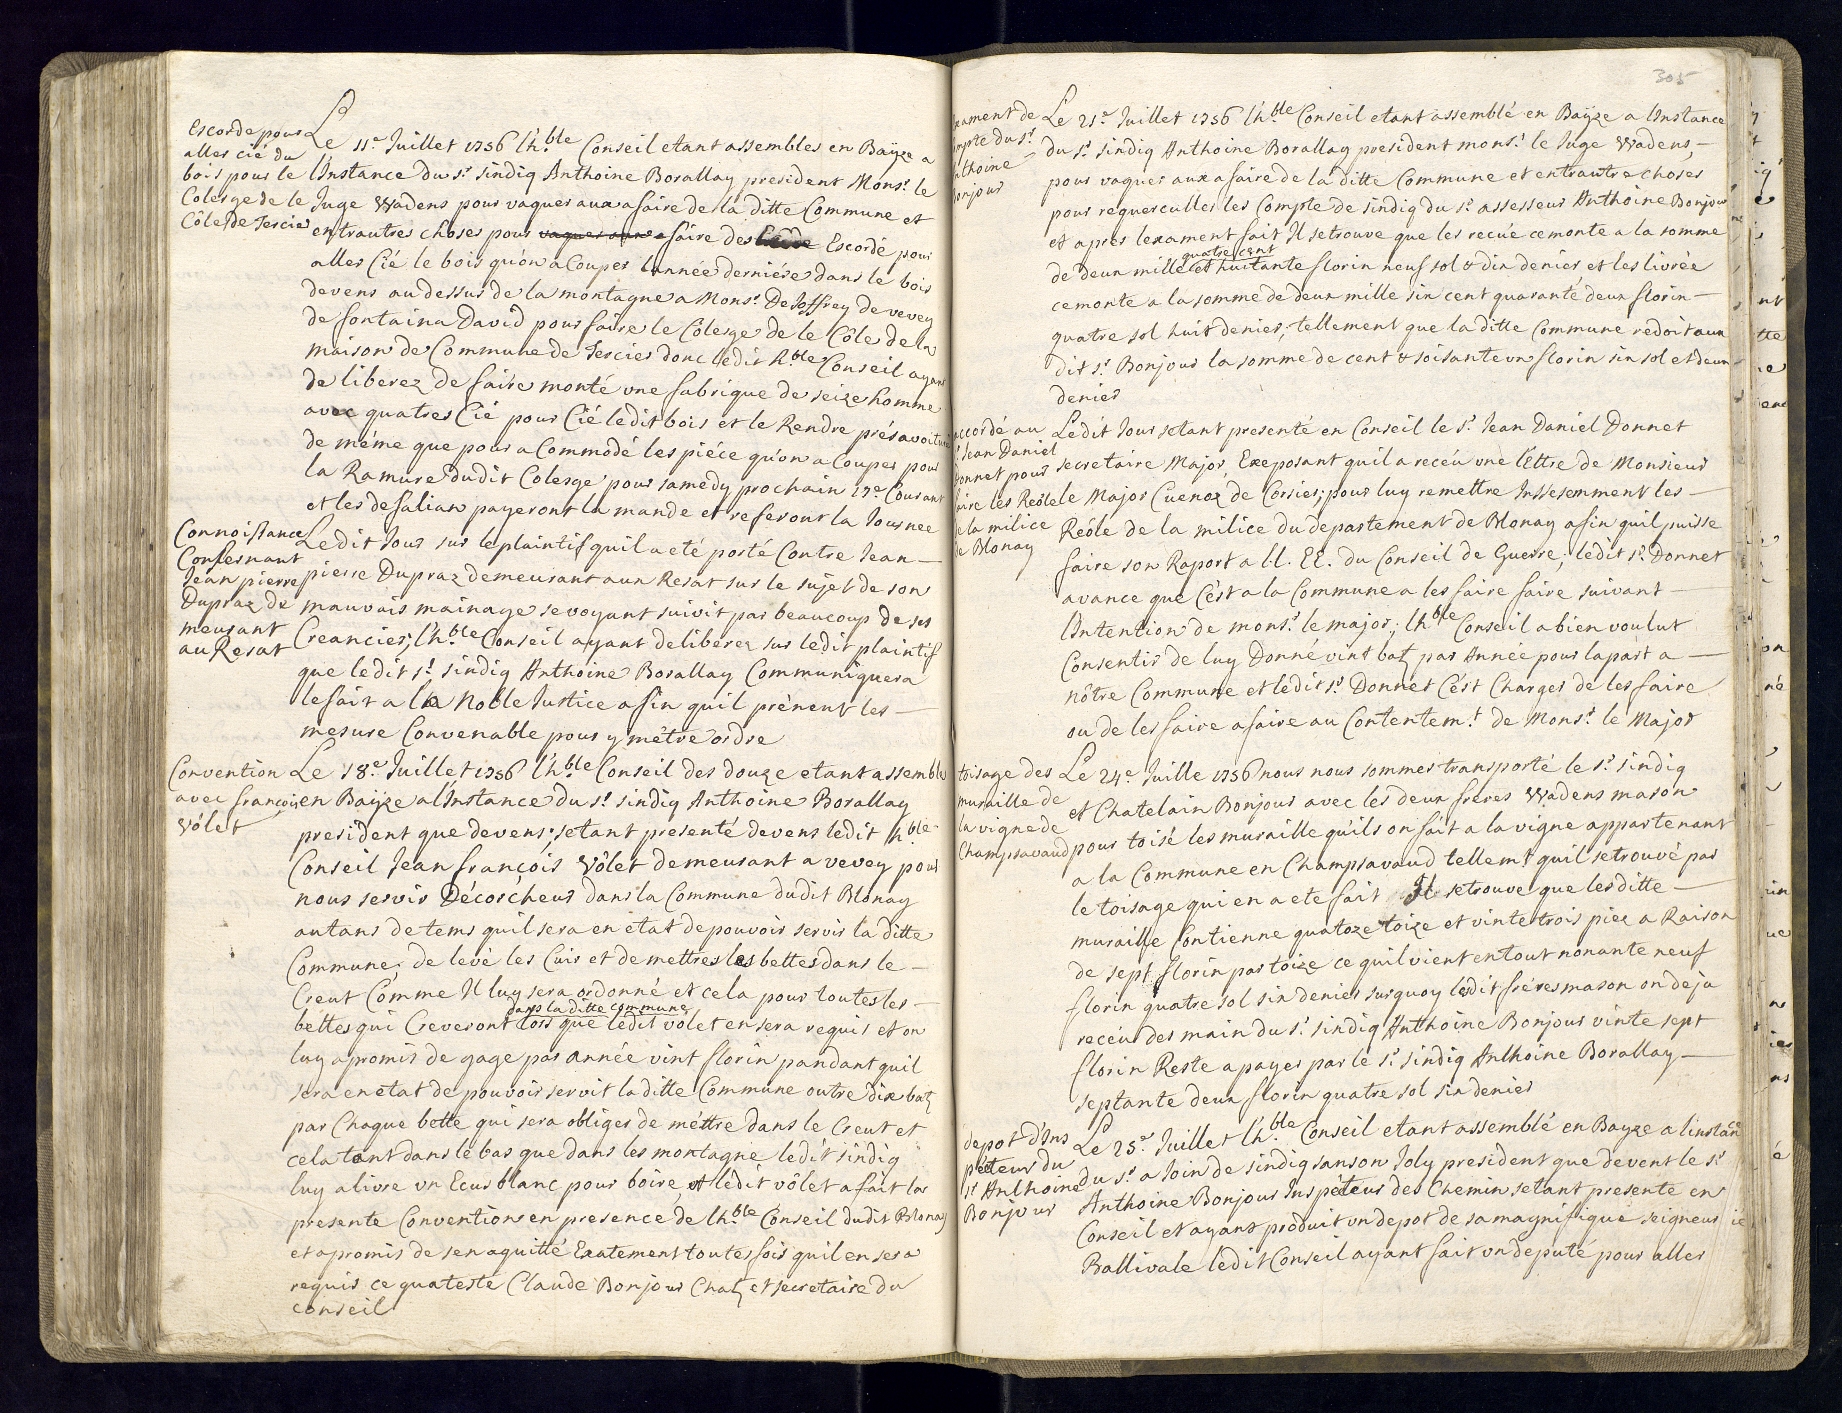 Escorde pour
aller cié du
bois pour le
Colerge de le
Côle de Tercier
Le 11.e Juillet 1756 l'h.ble Conseil etant assembles en Baÿze a
l'Instance du s.r sindiq Anthoine Borallay president Mons.r le
Juge Wadens pour vaquer aux afaire de la ditte Commune et
entrautres choses pour vaquer aux afaire des Escordé pour
aller Cié le bois qu'on a Couper lannée derniére dans le bois
devens au dessus de la montagne a Mons.r De Joffrey de vevey
de fontaina David pour faire le Colerge de le Côle de la
maison de Commune de Tercier donc ledit h.ble Conseil ayant
de liberez de faire monté vne fabrique de seize homme
avec quatres Cié pour Cié ledit bois et le Rendre prés avoiturer
de méme que pour a Commôdé les piéce qu'on a Couper pour
la Ramure dudit Colerge pour samedy prochain 17.e Courant
et les defaliax payeront la mande et referont la Journee
Connoissance
Confernant
Jean pierre
Dupraz de
meurant
au Resat
Ledit Jour sur le plaintif quil a eté porté Contre Jean
pierre Dupraz demeurant aux Resat sur le sujet de son
mauvais mainage se voyant suivit par beaucoup de ses
Creancier; l'h.ble Conseil ayant deliberez sur ledit plaintif
que ledit s.r sindiq Anthoine Borallay Communiquera
le fait a la Noble Justice afin quil prénent les
mesure Convenable pour y métre ordre
Convention
avec françois
Vôlet
Le 18.e Juillet 1756 l'h.ble Conseil des douze etant assemblé
en Baÿze a l'Instance du s.r sindiq Anthoine Borallay
president que devens; setant presenté devens ledit h.ble
Conseil Jean françois Vôlet demeurant a vevey pour
nous servir Décorcheur dans la Commune dudit Blonay
autans de tems quil sera en état de pouvoir servir la ditte
Commune; de levé les Cuir et de mettres les bettes dans le
Creut Comme Il luy sera ordonné et cela pour toutes les
dans la ditte commune
bettes qui Creveront lors que ledit vôlet en sera requis et on
luy a promis de gage par année vint florin pandant quil
sera en etat de pouvoir servit la ditte Commune outre dix batz
par Chaque bette qui sera obliger de méttre dans le Creut et
cela tant dans le bas que dans les montagne ledit sindiq
luy a livre vn Ecus blanc pour boire, et lédit vôlet a fait la
presente Convention en presence de lh.ble Conseil dudit Blonay
et a promis de sen aquitté Exatement toutes fois quil en sera
requis ce quateste Claude Bonjour Chatz et secretaire du
conseil
305
xament de
mpte du s.r
nthoine
onjour
Le 21.e Juillet 1756 l'h.ble Conseil etant assemblé en Baÿze a l'Instance
du s.r sindiq Anthoine Borallay president mons.r le Juge Wadens,
pour vaquer aux afaire de la ditte Commune et entrautre choses
pour requerculler les Compte de sindiq du s.r assesseur Anthoine Bonjour
et aprés lexament fait Il se trouve que les recüe ce monte a la somme
quatre cent
de deux mille et huitante florin neuf sol & dix denier et les livrée
ce monte a la somme de deux mille six cent quaranté deux florin
quatre sol huit denier; tellement que la ditte Commune redoit aux
dit s.r Bonjour la somme de cent & soisante vn florin six sol et deux
denier
ccordé au
s.r Jean Daniel
onnet pour
aire les Reôle
e la milice
e Blonay
Ledit Jour setant presenté en Conseil le s.r Jean Daniel Donnet
secretaire Major, Exeposant quil a recéu vne léttre de Monsieur
le Major Cuenoz de Corsier; pour luy remettre Inssesemment les
Reôle de la milice du departement de Blonay afin quil puisse
faire son Raport a ll. EE. du Conseil de Guerre; lédit s.r Donnet
avance que Cést a la Commune a les faire faire suivant
l'Intention de mons.r le major; lh.ble Conseil a bien voulut
Consentir de luy Donné vint batz par Année pour la part a
nôtre Commune et lédit s.r Donnet Cést Charger de les faire
ou de les faire afaire au Contentem.t de Mons.r le Major
toisage des
muraille de
la vigne de
Champsavaud
Le 24.e Juille 1756 nous nous sommes transporté le s.r sindiq
et Chatelain Bonjour avec les deux fréres Wadens mason
pour toisé les muraille qu'ils on fait a la vigne appartenant
a la Commune en Champsavaud tellem.t quil se trouvé par
le toisage qui en a ete fait Il se trouve que les ditte
muraille Contienne quatoze toize et vinte trois piez a Raison
de sept florin par toize ce quil vient en tout nonante neuf
florin quatre sol six denier surquoy lédit fréres mason on deja
recéu des main du s.r sindiq Anthoine Bonjour vinte sept
florin Reste a payer par le s.r sindiq Anthoine Borallay
septante deux florin quatre sol six denier
depot d'Ins
péteur du
s.r Anthoine
Bonjour
Le 25.e Juillet l'h.ble Conseil etant assemblé en Bayze a linstance
du s.r a Join de sindiq sanson Joly president que devent le s.r
Anthoine Bonjour Inspéteur des Chemin setant presente en
Conseil et ayant produit vn depot de sa magnifique seigneur
Ballivale ledit Conseil ayant fait vn deputé pour aller